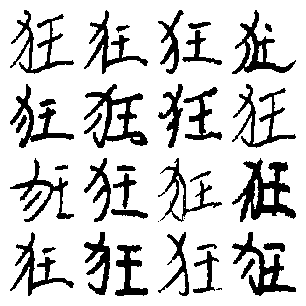 狂狂狂狂
狂狂狂狂
狂狂狂狂
狂狂狂狂